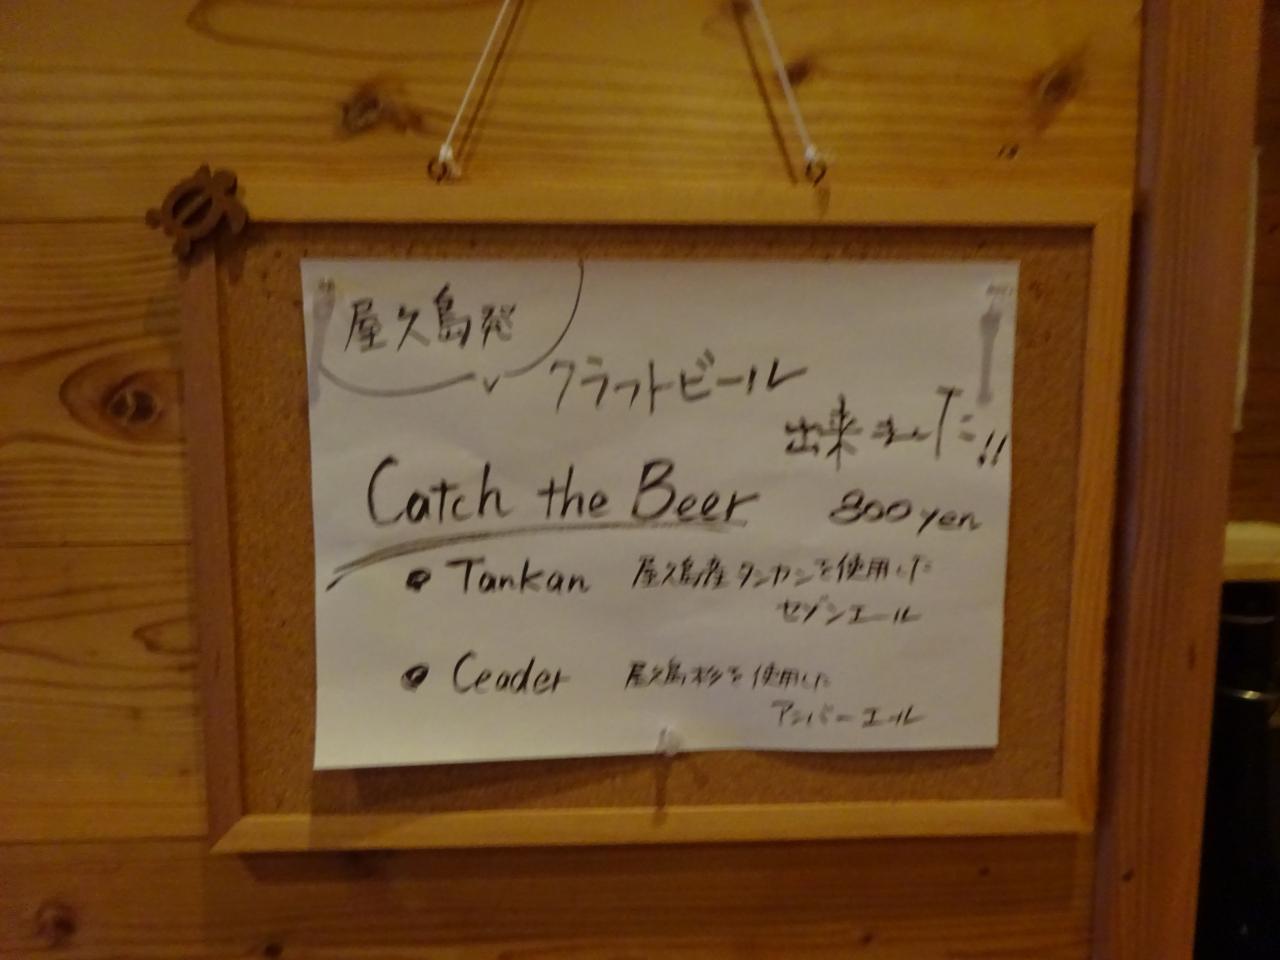 屋久島発
クラフトビール
出来ました!!
Catch the Beer 800yen
● Tankan 屋久島産タンカンを使用した
セゾンエール
● Ceader 屋久島杉を使用した
アンバーエール